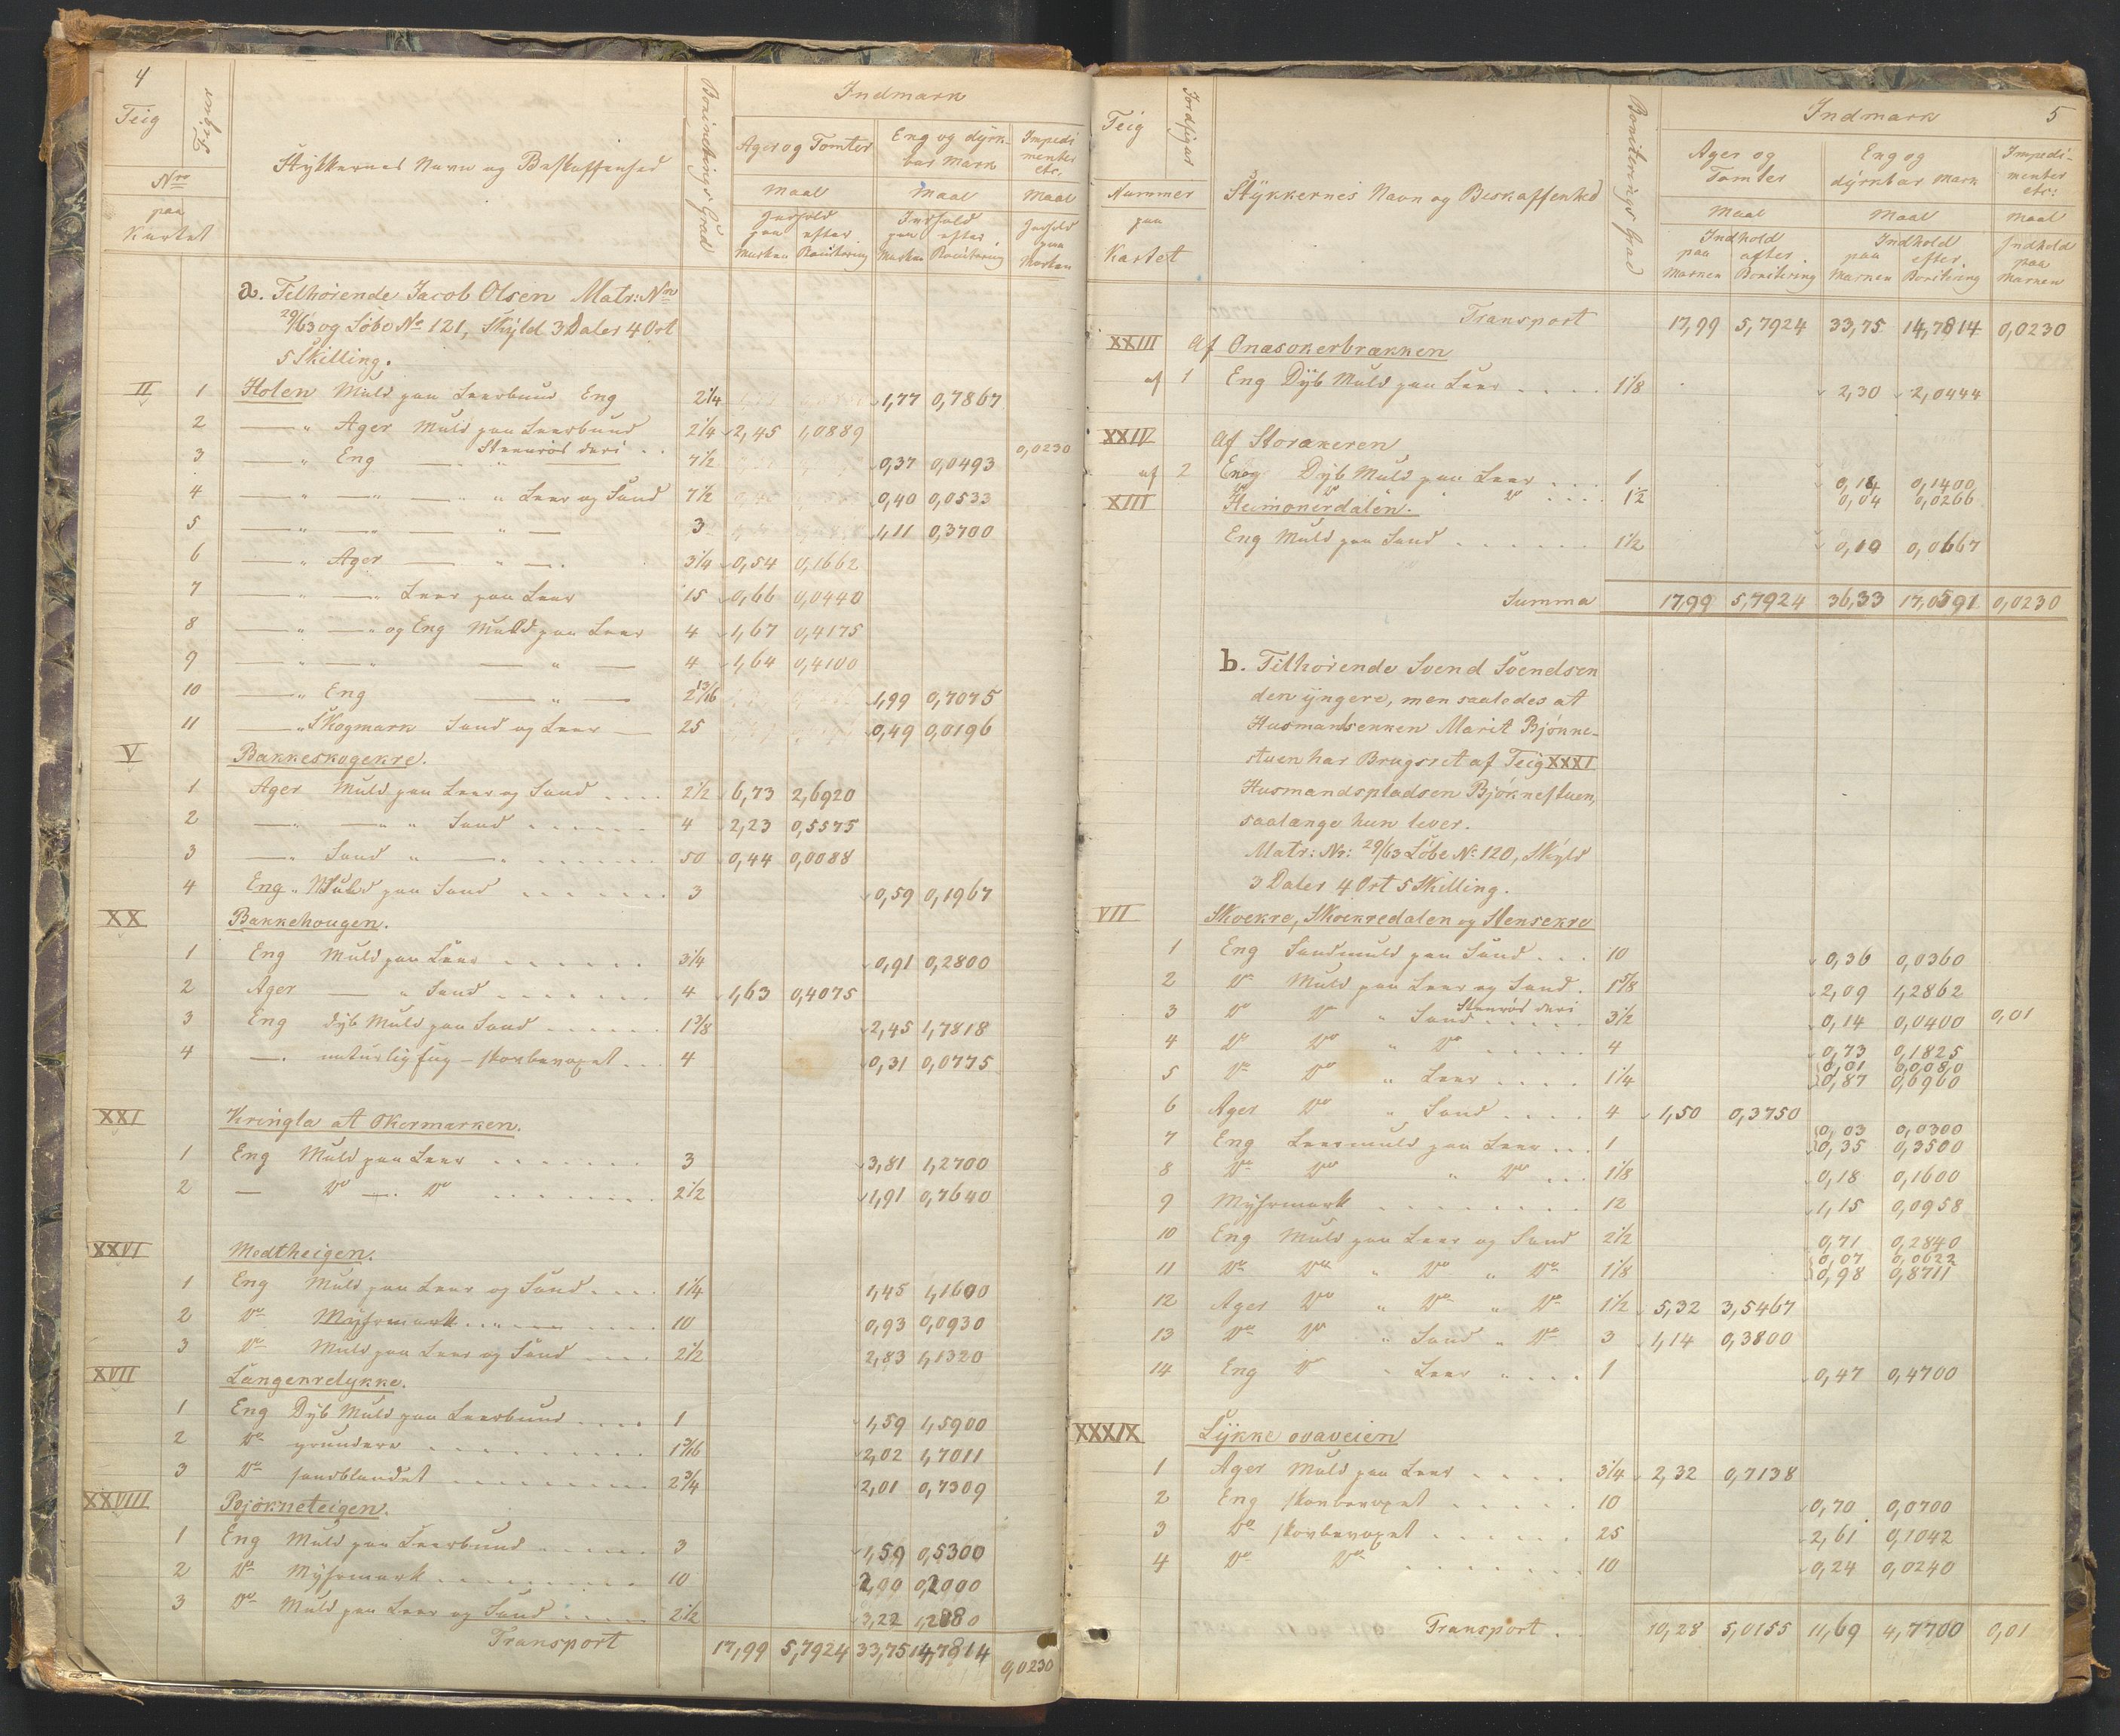 4
Teig Figur Stykkernes Navn og Beskaffenhed Boniterings Grad Indmark
Ager og Tomter Eng og dyrk- Impedi
bar Mark menter
etc.
Nro Maal Maal Maal
paa Indhold Indhold Indhold
Kartet paa efter paa efter paa
Marken Bonitering Marken Bonitering Marken
a. Tilhørende Jacob Olsen Matr: No
29/63 og Løbe No 121, Skyld 3 Daler 4 Ort
5 Skilling.
II 1 Holen Muld paa Leerbund Eng 2 1/4 1,77 0,7867
2 — " Ager Muld paa Leerbund 2 1/4 2,45 1,0889
3 — " Eng — " Steenrøs deri . . 7 1/2 0,37 0,0493 0,0230
4 — " — " — " Leer og Sand 7 1/2 0,40 0,0533
5 — " — " — " — 3 1,11 0,3700
6 — " Ager — " — . 3 1/4 0,54 0,1662
7 — " — " Leer paa Leer 15 0,66 0,0440
8 — " — " og Eng Muld paa Leer 4 1,67 0,4175
9 — " — " — " — 4 1,64 0,4100
10 — " Eng — " — 2 13/16 1,99 0,7075
11 — " Skogmark Sand og Leer — 25 0,49 0,0196
V Bakkeskogekre.
1 Ager Muld paa Leer og Sand . . . . 2 1/2 6,73 2,6920
2 — " — " " Sand . . . . . . 4 2,23 0,5575
3 — " Sand " — " . . . . . . 50 0,44 0,0088
4 Eng " Muld paa Sand . . . . . . 3 0,59 0,1967
XX Bakkehougen.
1 Eng Muld paa Leer . . . . . . 3 1/4 0,91 0,2800
2 Ager — " Sand . . . . . . 4 1,63 0,4075
3 Eng dyb Muld paa Sand . . . . . . 1 3/8 2,45 1,7818
4 — " naturlig Eng – skovbevoxet . . . 4 0,31 0,0775
XXI Kringla at Okermarken.
1 Eng Muld paa Leer . . . . . . 3 3,81 1,2700
2 — Do — . Do . . . . . . 2 1/2 1,91 0,7640
XXVI Medtheigen.
1 Eng Muld paa Leer og Sand . . . . 1 1/4 1,45 1,1600
2 Do Myhrmark . . . . . . 10 0,93 0,0930
3 Do Muld paa Leer og Sand . . . . 2 1/2 2,83 1,1320
XVII Langenrelykke.
1 Eng Dyb Muld paa Leerbund . . . . 1 1,59 1,5900
2 Do grundere . . . . . . 1 3/16 2,02 1,7011
3 Do sandblandet . . . . . . 2 3/4 2,01 0,7309
XXVIII Bjørkneteigen.
1 Eng Muld paa Leerbund . . . . . 3 1,59 0,5300
2 Do Myhrmark . . . . . . 10
3 Do Muld paa Leer og Sand . . . . . 2 1/2 3,22 1,2880
Transport 17,99 5,7924 33,75 14,7814 0,0230
5
Teig Jordfigur Stykkernes Navn og Beskaffenhed Boniterings Grad Indmark
Ager og Eng og Impedi-
Tomter dyrkbar Mark menter
etc:
Nummer Maal Maal Maal
paa Indhold Indhold Indhold
Kartet paa efter paa efter paa
Marken Bonitering Marken Bonitering Marken
Transport 17,99 5,7924 33,75 14,7814 0,0230
XXIII Af Onasokerbrækken
af 1 Eng Dyb Muld paa Leer . . . . 1 1/8 2,30 2,0444
XXIV Af Storakeren
af 2 Eng Dyb Muld paa Leer . . . 1 0,14 0,1400
Do Do " Do . . . . 1 1/2 0,04 0,0266
XIII Heimonerdalen.
Eng Muld paa Sand . . . . . . 1 1/2 0,10 0,0667
Summa 17,99 5,7924 36,33 17,0591 0,0230
b. Tilhørende Svend Svendsen
den yngere, men saaledes at
Husmandsenken Marit Bjørkne-
stuen har Brugsret af Teig XXXI
Husmandspladsen Bjørknestuen,
saalænge hun lever.
Matr: Nr: 29/63 Løbe No 120, Skyld
3 Daler 4 Ort 5 Skilling.
VII Skoekre, Skoekredalen og Stensekre
1 Eng Sandmuld paa Sand . . . 10 0,36 0,0360
2 Do Muld paa Leer og Sand . 1 5/8 2,09 1,2862
3 Do Do " Sand Steenrøs deri . . . . . 3 1/2 0,14 0,0400 0,01
4 Do Do " Do . . . . . 4 0,73 0,1825
0,01 0,0080
5 Do Do " Leer . . . . 1 1/4 0,87 0,6960
6 Ager Do " Sand . . . . 4 1,50 0,3750
0,03 0,0300
7 Eng Leermuld paa Leer . . . 1 0,35 0,3500
8 Do Do " Do . . . 1 1/8 0,18 0,1600
9 Myhrmark . . . . . . . . 12 1,15 0,0958
10 Eng Muld paa Leer og Sand 2 1/2 0,71 0,2840
0,07 0,0622
11 Do Do " Do " Do 1 1/8 0,98 0,8711
12 Ager Do " Do " Do 1 1/2 5,32 3,5467
13 Do Do " Sand " Do 3 1,14 0,3800
14 Eng Do " Leer " . . . 1 0,47 0,4700
XXXIX Lykke ovaveien
1 Ager Muld paa Leer . . . . 3 1/4 2,32 0,7138
2 Eng skovbevoxet . . . . . 10 0,70 0,0700
3 Do skovbevoxet . . . . . 25 2,61 0,1042
4 Do Do . . . . . . 10 0,24 0,0240
Transport . . 10,28 5,0155 11,69 4,7700 0,01